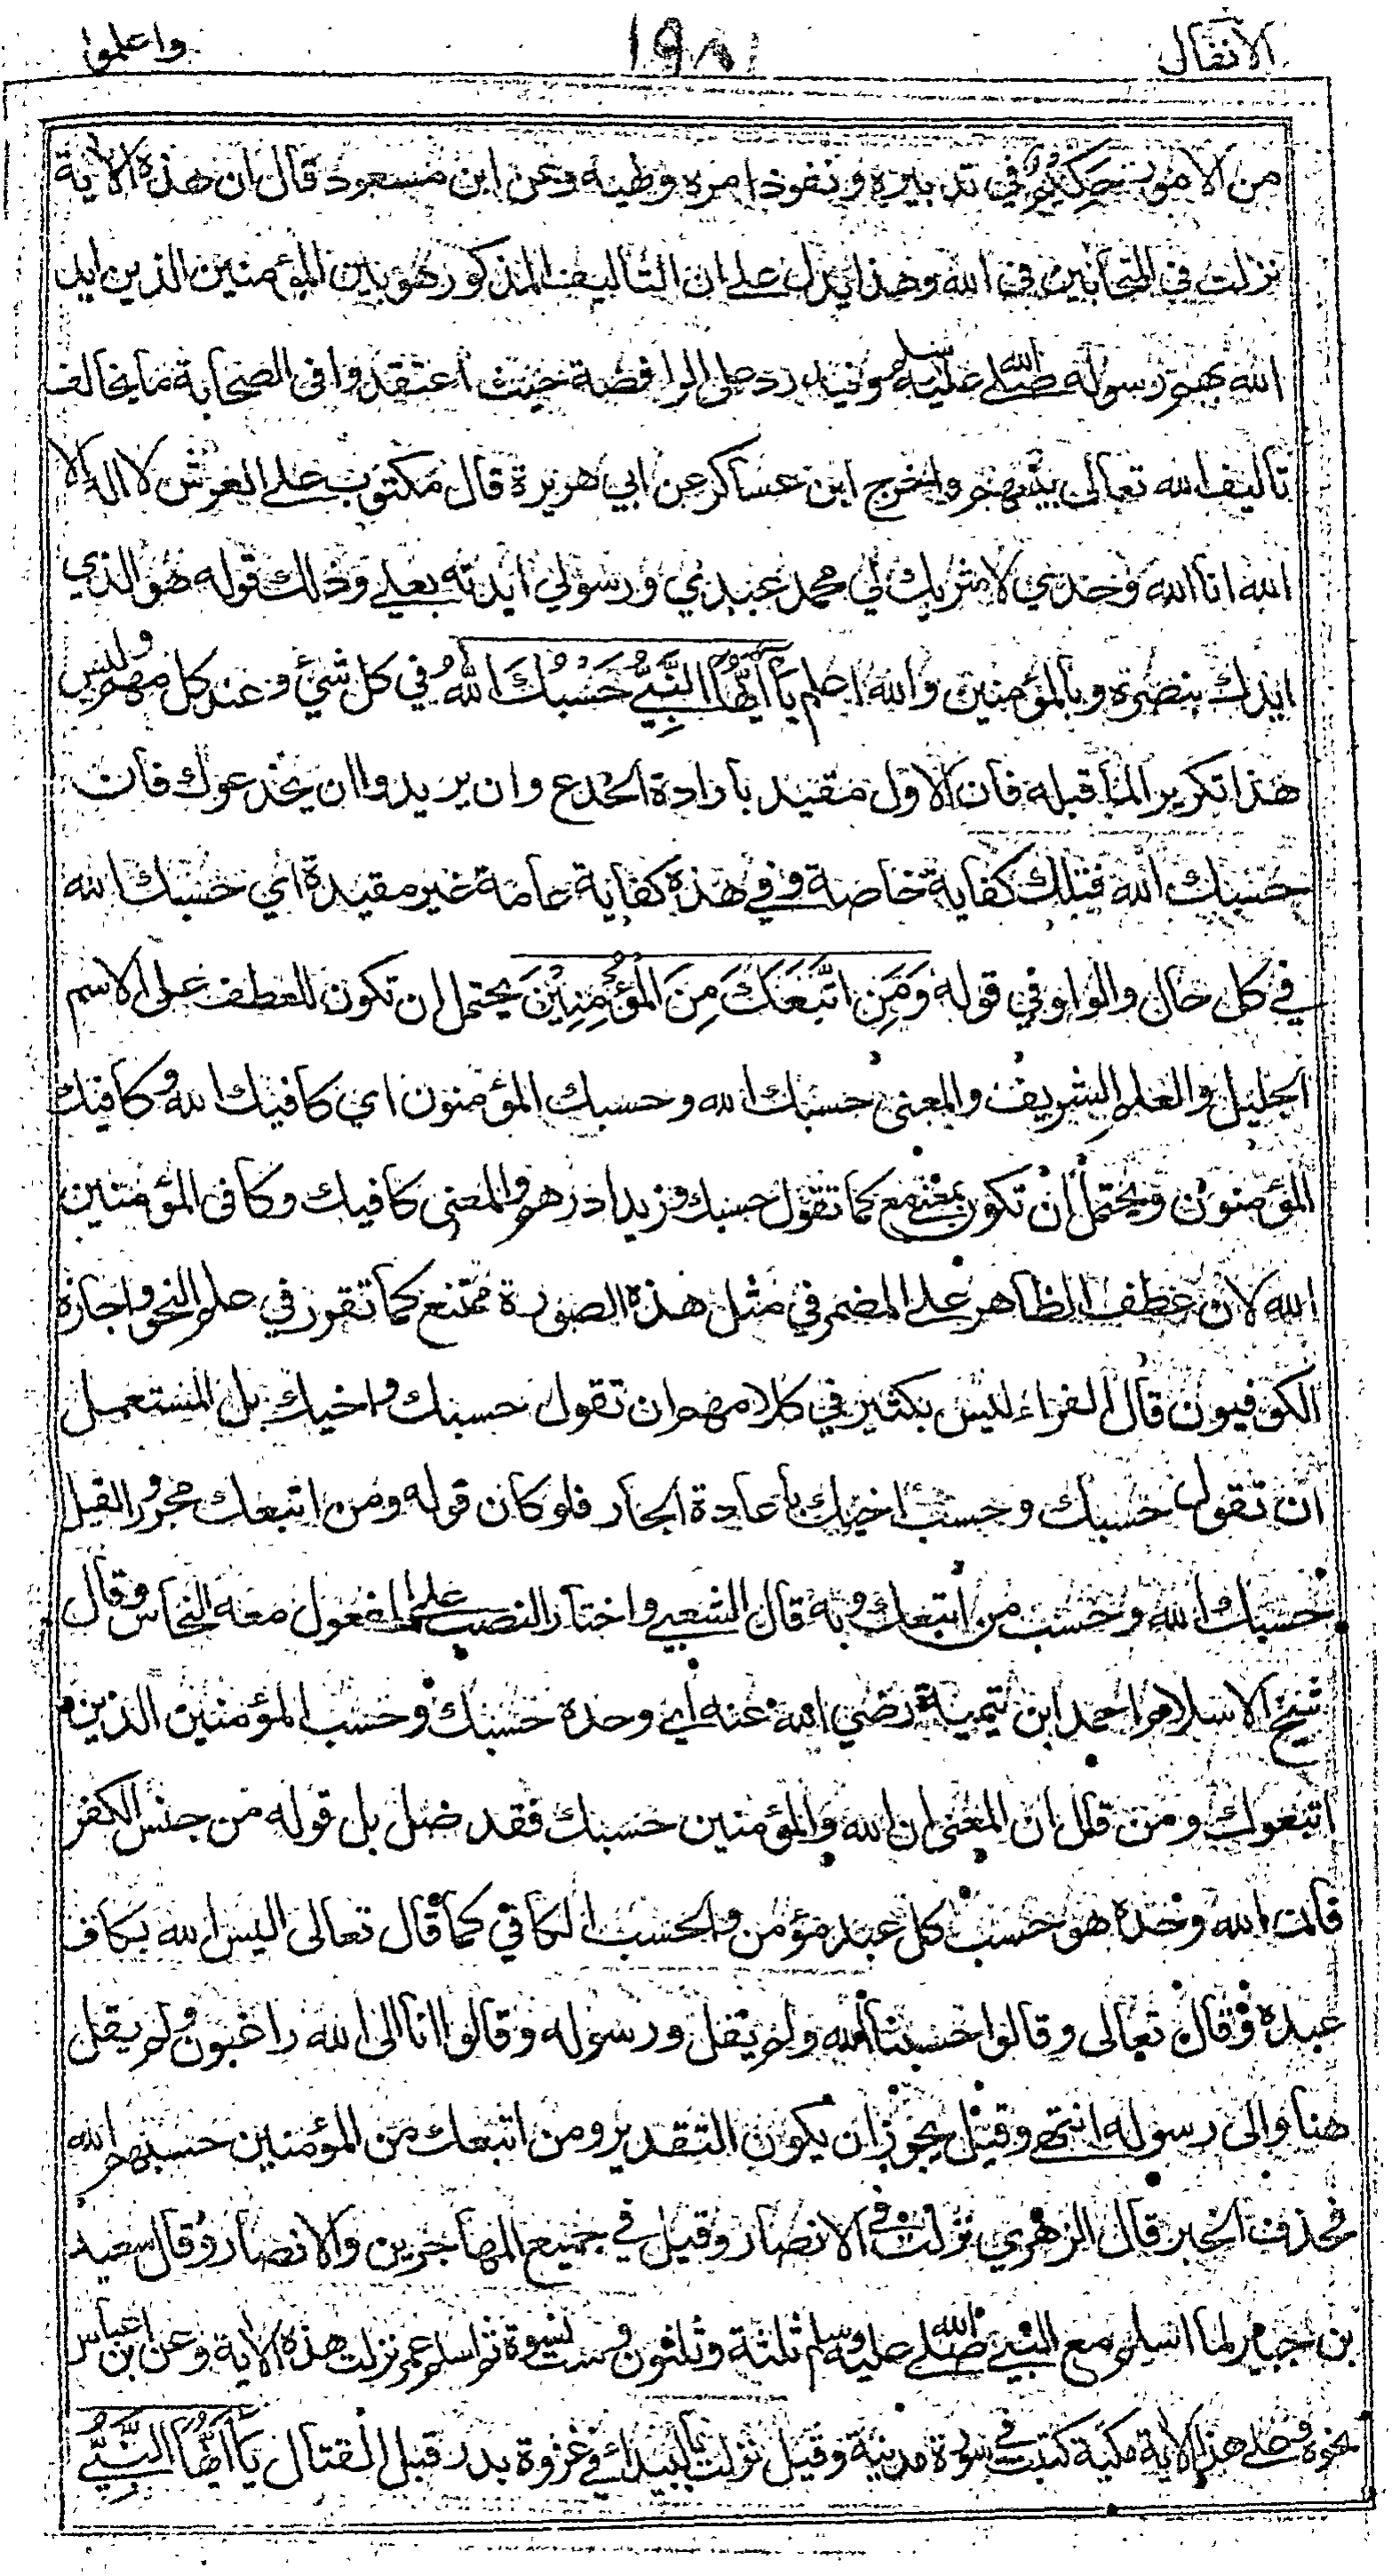 الانفال ١٩٨ واعلموا
من الامور حَكِيْمٌ في تدبيره ونفوذ امره ونهيه وعن ابن مسعود قال ان هذه الاية
نزلت في المتحابين في الله وهذا يدل على ان التأليف المذكور هو بين المؤمنين الذين ايد
الله بهم رسوله صلى الله عليه وسلم وفيه رد على الرافضة حيث اعتقدوا في الصحابة ما يخالف
تأليف الله تعالى بينهم واخرج ابن عساكر عن ابي هريرة قال مكتوب على العرش لا اله الا
الله انا الله وحدي لا شريك لي محمد عبدي ورسولي ايدته بعلي وذلك قوله هو الذي
ايدك بنصره وبالمؤمنين والله اعلم يَآ اَيُّهَا النَّبِيُّ حَسْبُكَ اللّٰهُ في كل شيء وعند كل مهم وليس
هذا تكرير المأ قبله فان الاول مقيد بارادة الخدع وان يريدوا ان يخدعوك فان
حسبك الله فتلك كفاية خاصة وفي هذه كفاية عامة غير مقيدة اي حسبك الله
في كل حال والواو في قوله وَمَنِ اتَّبَعَكَ مِنَ الْمُؤْمِنِيْنَ يحتمل ان تكون للعطف على الاسم
الجليل والعلم الشريف والمعنى حسبك الله وحسبك المؤمنون اي كافيك الله وكافيك
المؤمنون ويحتمل ان تكون بمعنى مع كما تقول حسبك وزيدا درهم والمعنى كافيك وكافي المؤمنين
الله لان عطف الظاهر على المضمر في مثل هذه الصورة ممتنع كما تقرر في علم النحو واجازه
الكوفيون قال الفراء ليس بكثير في كلامهم ان تقول حسبك واخيك بل المستعمل
ان تقول حسبك وحسب اخيك بأعادة الجار فلو كان قوله ومن اتبعك مجرورا لقيل
حسبك الله وحسب من اتبعك وبه قال الشعبي واختار النصب على المفعول معه النحاس وقال
شيخ الاسلام احمد ابن تيمية رضي الله عنه اي وحده حسبك وحسب المؤمنين الذين
اتبعوك ومن قال ان المعنى ان الله والمؤمنين حسبك فقد ضل بل قوله من جنس الكفر
فان الله وحده هو حسب كل عبد مؤمن والحسب الكافي كما قال تعالى اليس الله بكاف
عبده وقال تعالى وقالوا حسبنا الله ولم يقل ورسوله وقالوا انا الى الله راغبون ولم يقل
هنا والى رسوله انتهى وقيل يجوز ان يكون التقدير ومن اتبعك من المؤمنين حسبهم الله
فحذف الخبر قال الزهري نزلت في الانصار وقيل في جميع المهاجرين والانصار وقال سعيد
بن جبير لما اسلم مع النبي صلى الله عليه وسلم ثلثة وثلثون وست نسوة ثم اسلم عمر نزلت هذه الاية وعن ابن عباس
نحوه فعلى هذا الاية مكية كتبت في سورة مدنية وقيل نزلت بالبيداء في غزوة بدر قبل القتال يَآ اَيُّهَا النَّبِيُّ